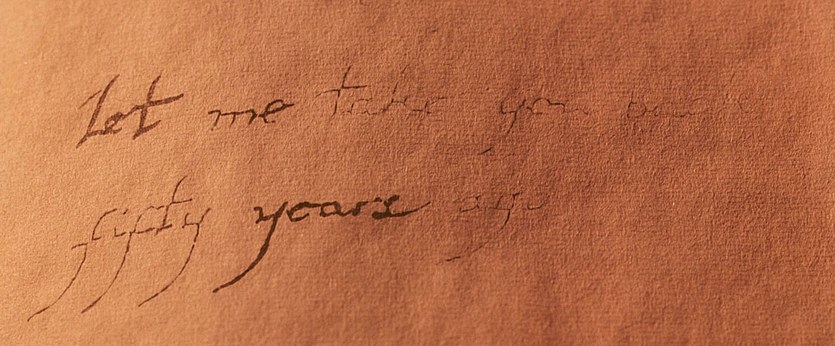 Let me take you
fifty years ago